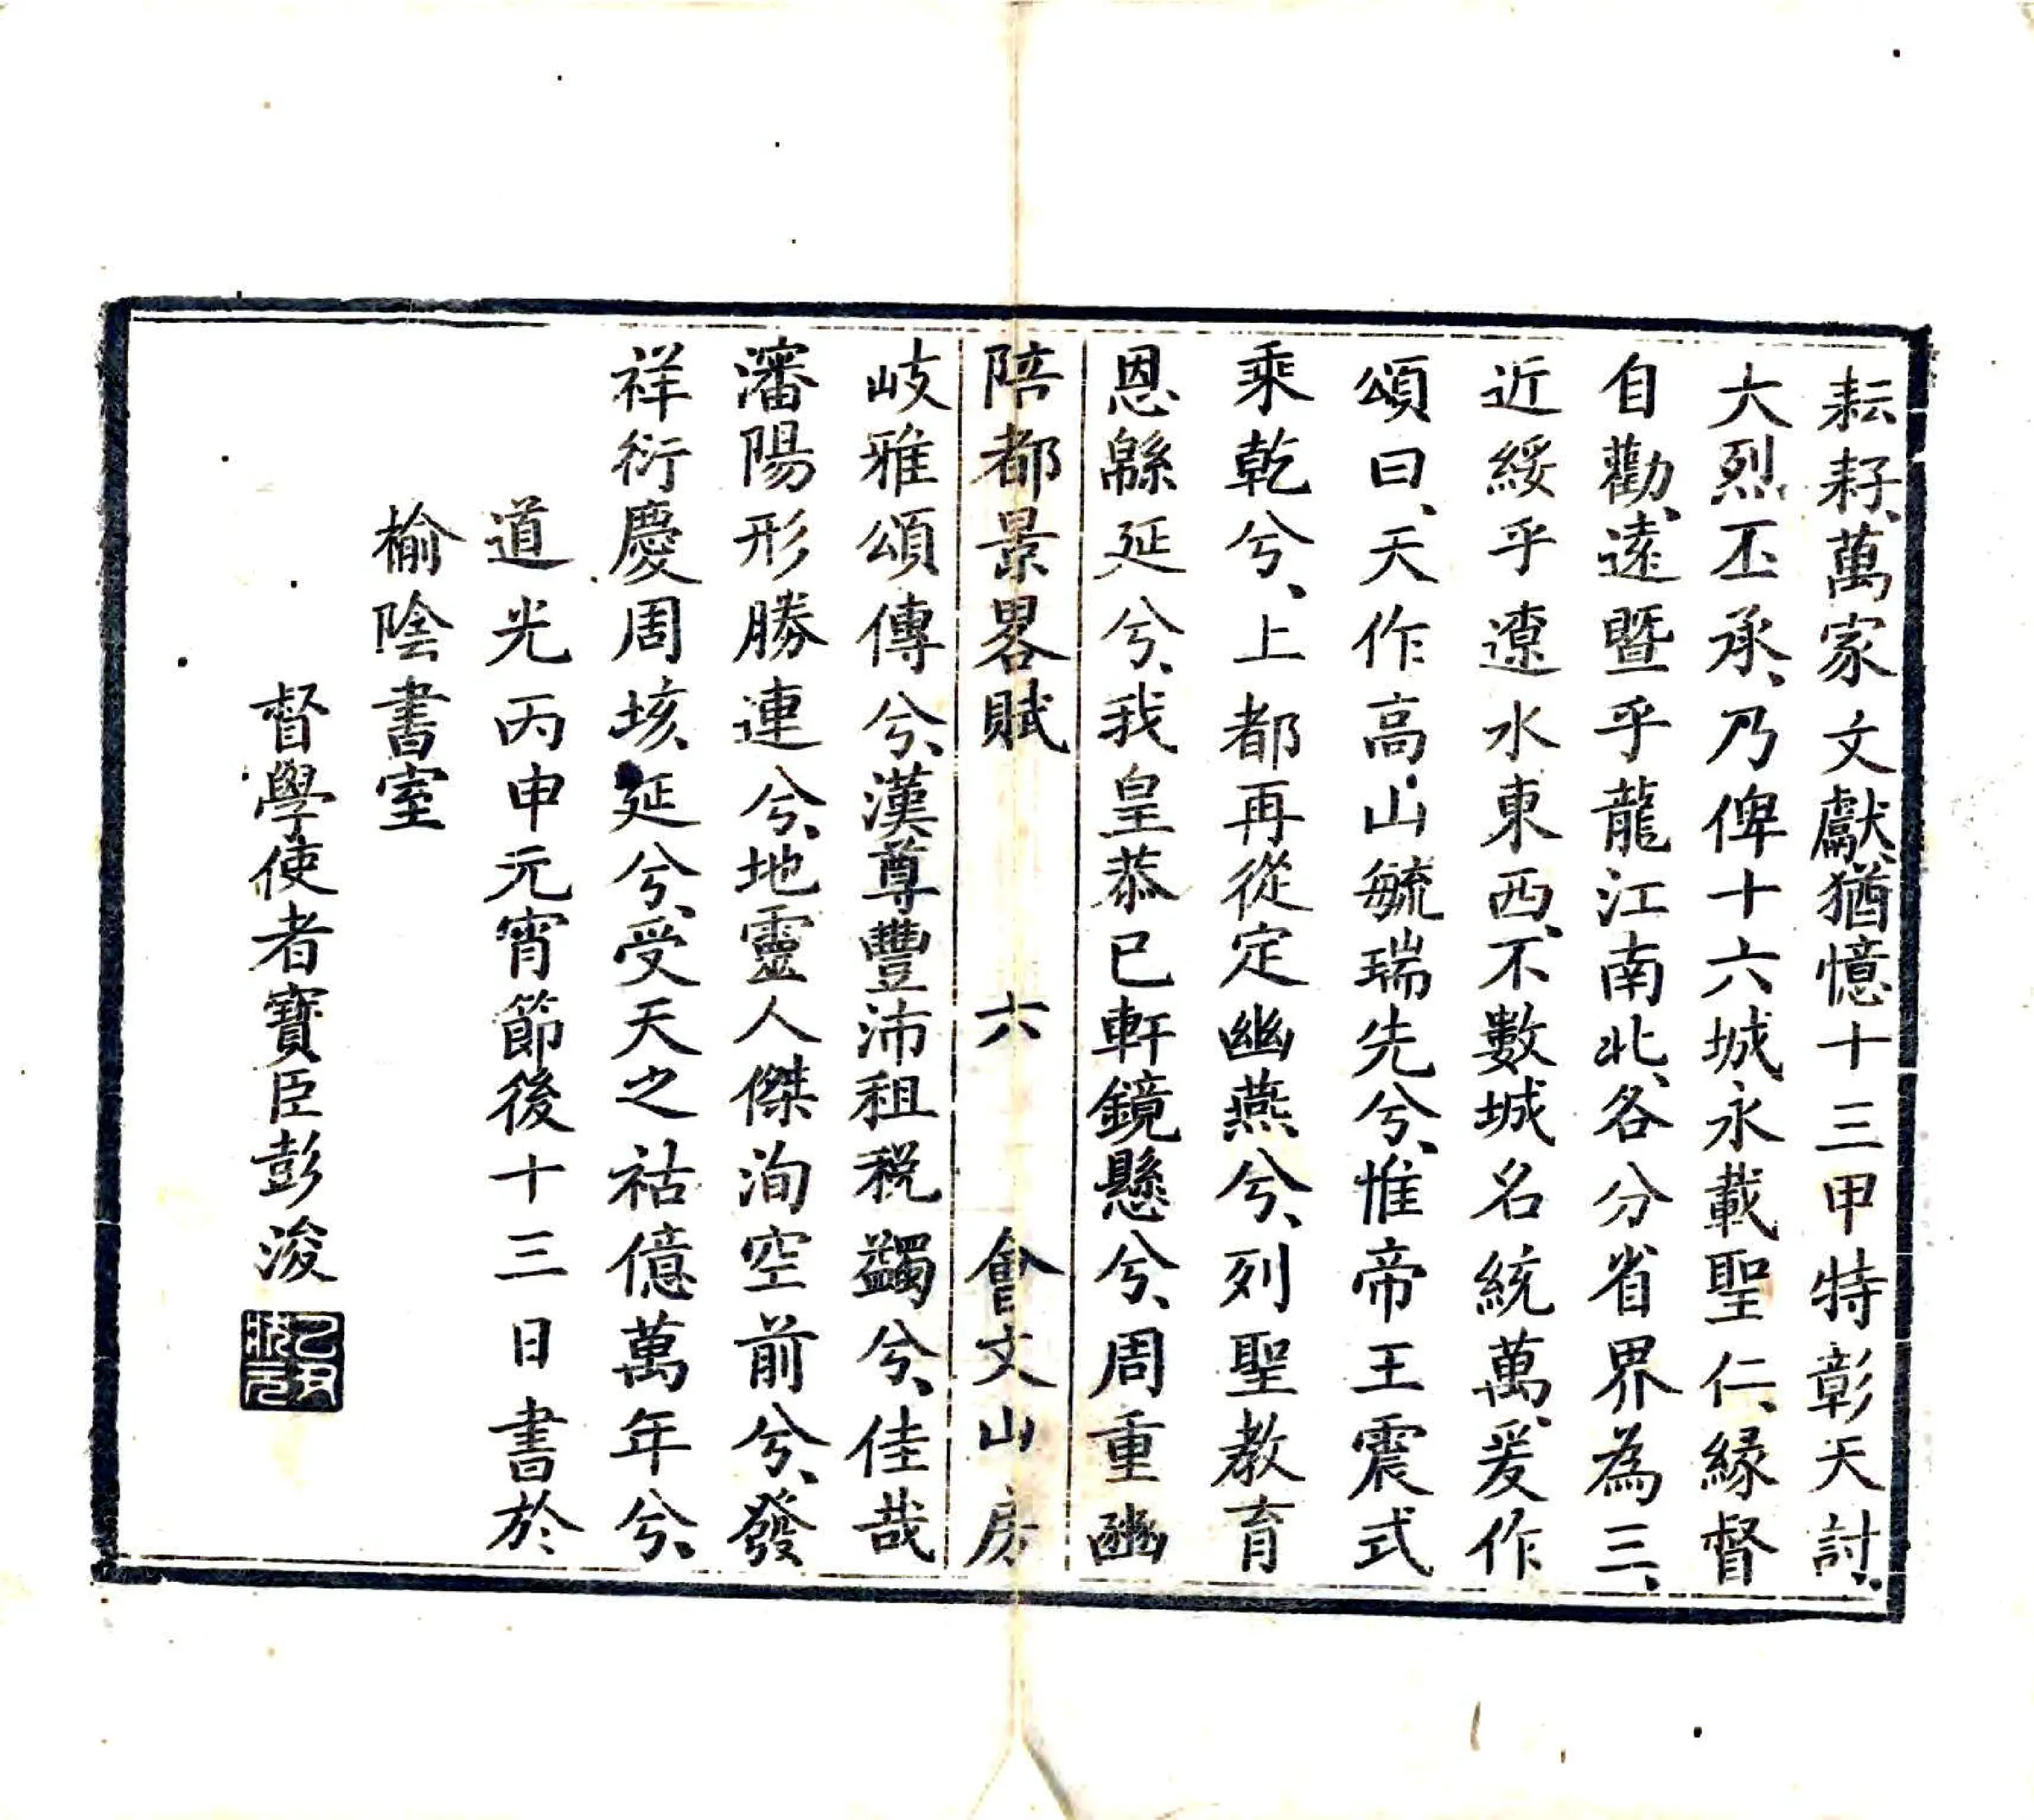 耘耔、萬家文獻、猶憶十三甲特彰天討、
大烈丕承、乃俾十六城永載聖仁、緣督
自勸、遠暨乎龍江南北、各分省界為三、
近綏乎遼水東西、不數城名統萬、爰作
頌曰、天作高山毓瑞先兮、惟帝王震式
乘乾兮、上都再從定幽燕兮、列聖教育
恩緜延兮、我皇恭已軒鏡懸兮、周重豳
陪都景畧賦 六 會文山房
岐雅頌傳兮、漢尊豐沛租稅蠲兮、佳哉
瀋陽形勝連兮、地靈人傑洵空前兮、發
祥衍慶周垓延兮、受天之祜億萬年兮、
道光丙申元宵節後十三日書於
榆陰書室
督學使者寶臣彭浚